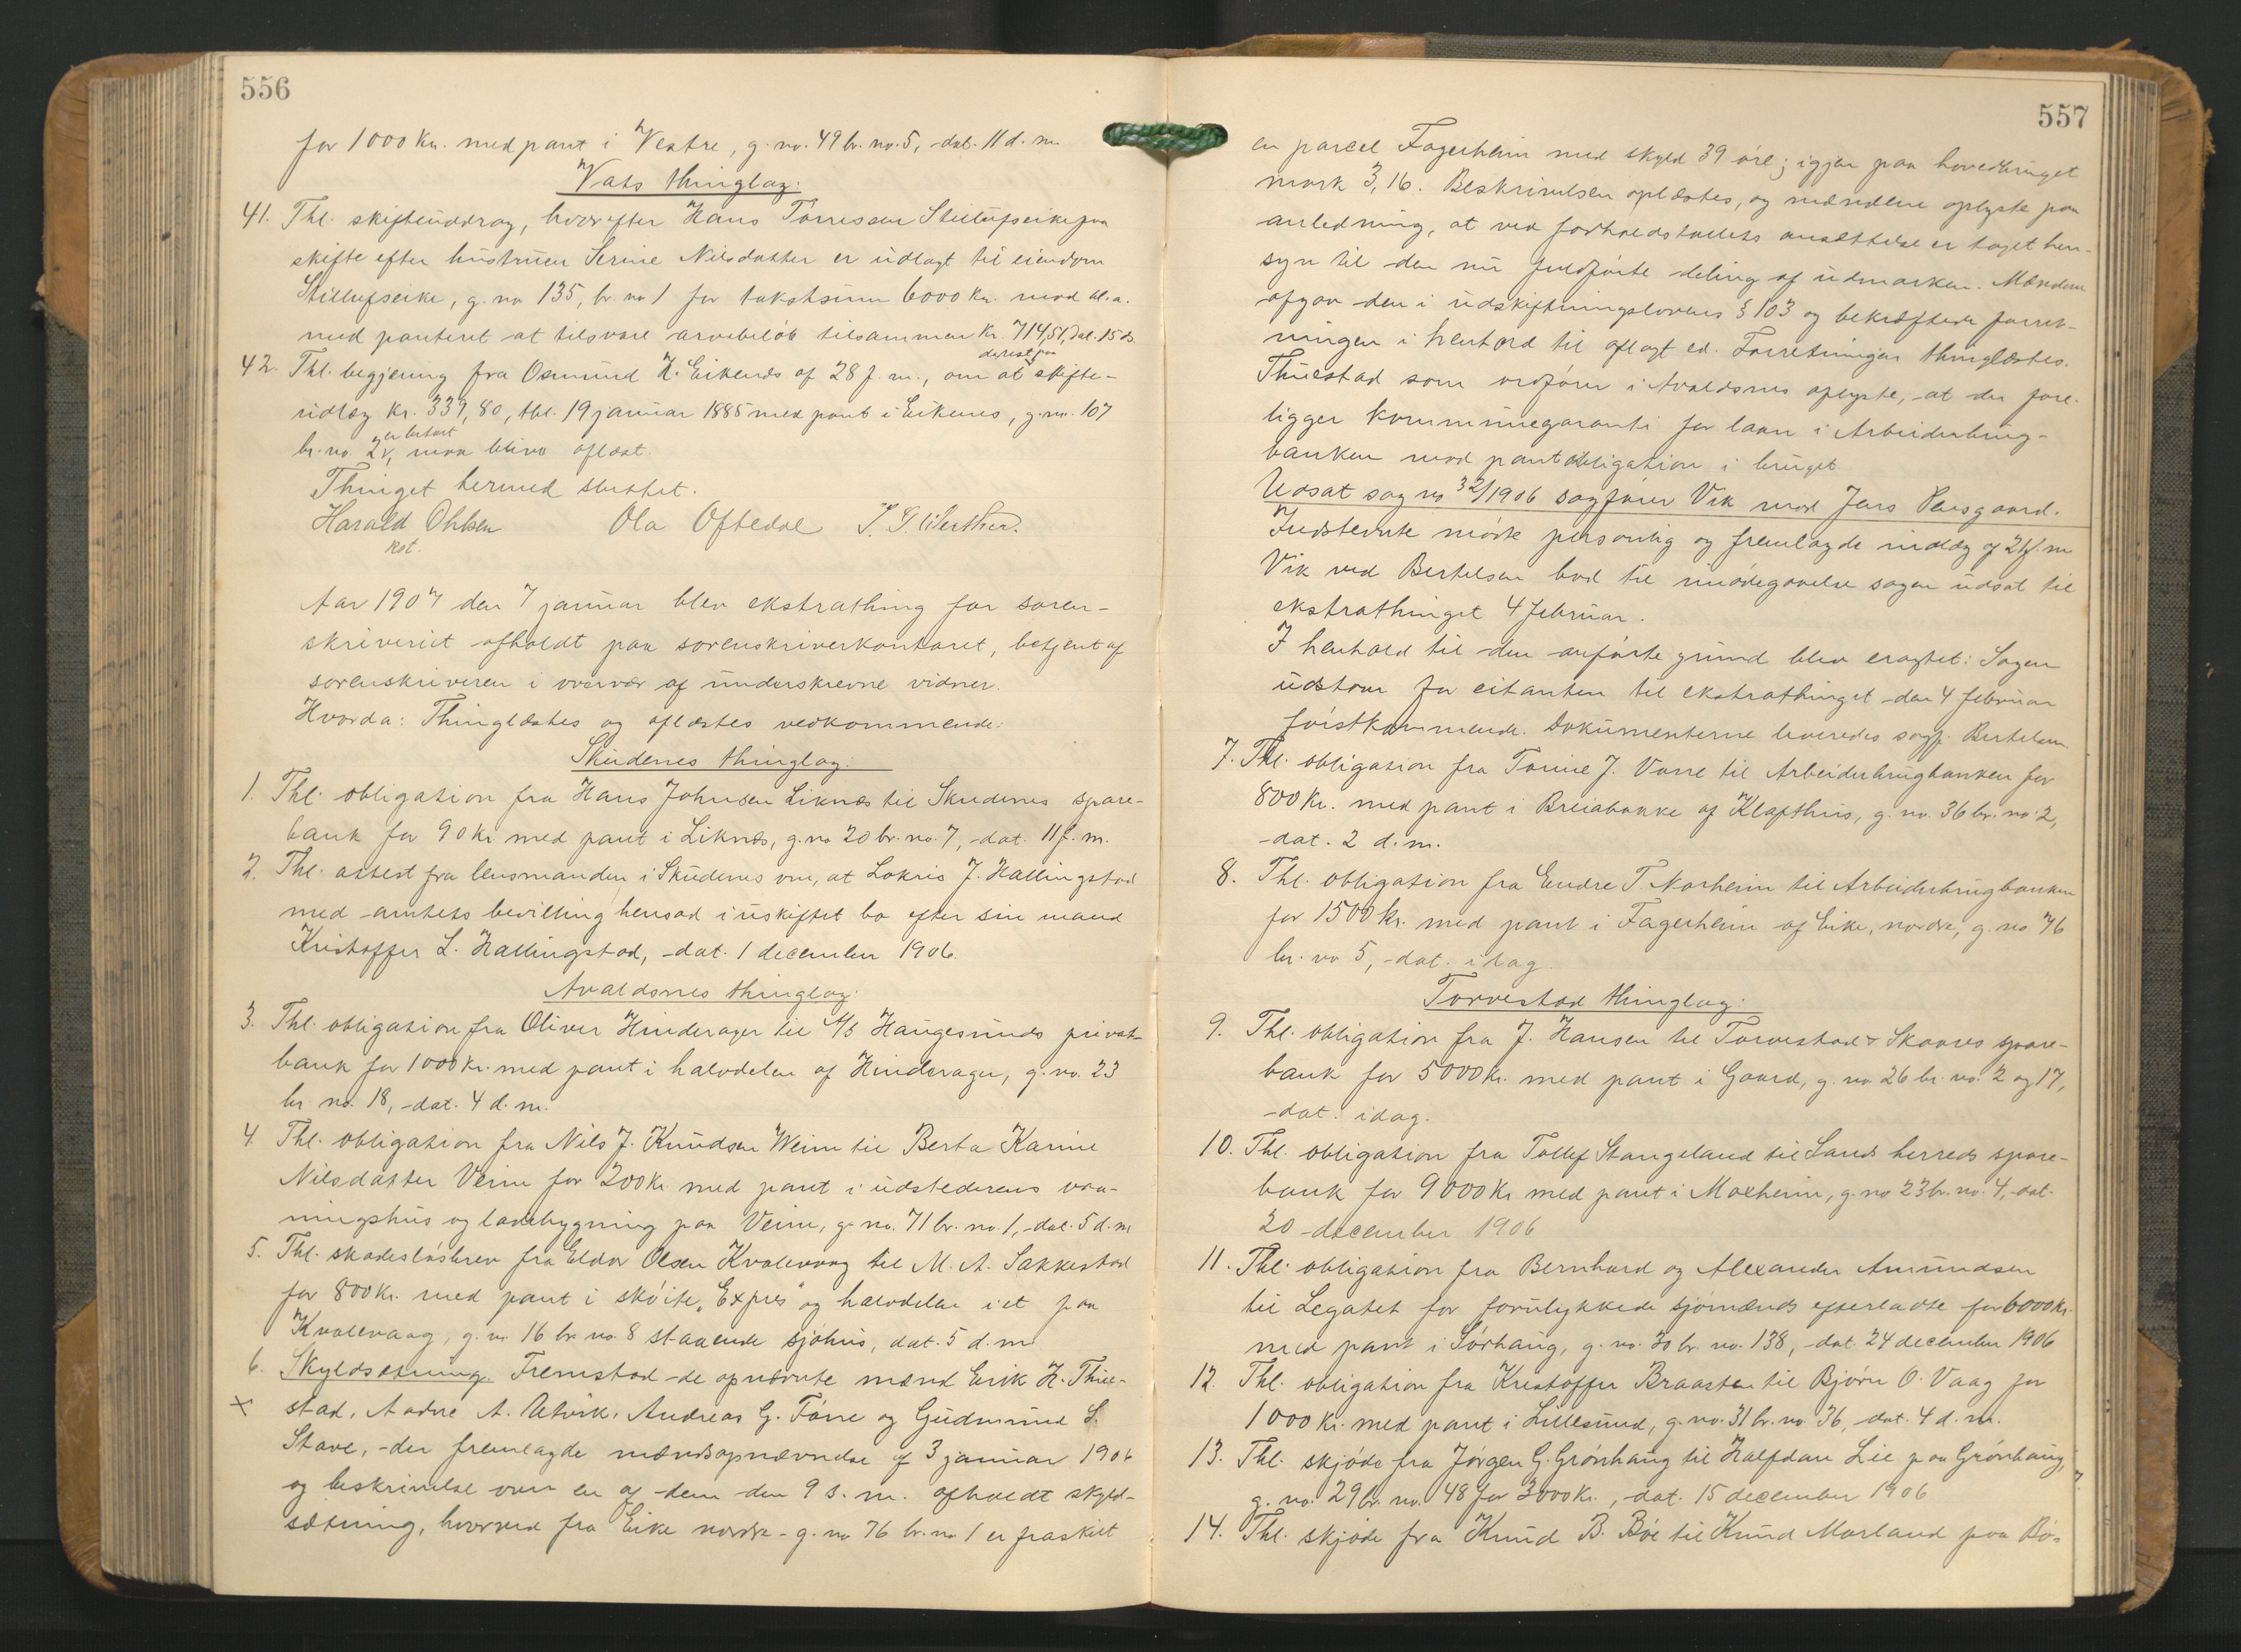 556
for 1000 Kr. med pant i Vestre, g. no. 49 br. no. 5, dat. 11 d. m.
Vats thinglag:
41. Thl. skifteuddrag, hvorefter Hans Torressen Stillufseike paa
skifte efter hustruen Serine Nilsdatter er udlagt til eiendom
Stillufseike, g. no 135, br. no 1 for takstsum 6000 Kr. mod bl. a.
med panteret at tilsvare arvebeløb tilsammen Kr. 714,51, dat. 15 ds.
42. Thl. begjering fra Osmund H. Eikenes af 28 f. m., om at deres paa skifte-
udlæg Kr. 339,80, thl. 19 januar 1885 med pant i Eikenes, g. no. 107
br. no. 2 er betalt, maa blive aflæst.
Thinget hermed sluttet.
Harald Ohlsen Ola Oftedal
kst.
Aar 1907 den 7 januar blev ekstrathing for soren-
skriveriet afholdt paa sorenskriverkontoret, betjent af
sorenskriveren i overvær af underskrevne vidner.
Hvorda: Thinglæstes og aflæstes vedkommende:
Skudenes thinglag:
1. Thl. obligation fra Hans Johnsen Liknæs til Skudenes spare-
bank for 90 Kr. med pant i Liknæs, g. no 20 br. no. 7, dat. 11 f. m.
2. Thl. attest fra lensmanden i Skudenes om, at Lokris J. Hallingstad
med amtets bevilling hensad i uskiftet bo efter sin mand
Kristoffer L. Hallingstad, dat. 1 december 1906.
Avaldsnes thinglag:
3. Thl. obligation fra Oliver Hinderager til A/S Haugesunds privat-
bank for 1000 Kr. med pant i halvdelen af Hinderager, g. no. 23
br. no. 18, dat. 4 d. m.
4. Thl. obligation fra Nils J. Knudsen Weim til Berta Karine
Nilsdatter Veim for 200 Kr. med pant i udstederens vaa-
ningshus og ladebygning paa Veim, g. no. 71 br. no. 1, dat. 5 d. m
5. Thl. skadesløsbrev fra Eldor Olsen Kvalevaag til M. A. Sakkestad
for 800 Kr. med pant i skøite "Expres" og halvdelen i et paa
Kvalevaag, g. no 16 br. no. 8 staaende sjøhus, dat. 5 d. m
6. Skyldsætning. Fremstod de opnævnte mænd Erik H. Thue-
× stad, Aadne A. Utvik, Andreas G. Førre og Gudmund S.
Stave, der fremlagde mændsopnævnelse af 3 januar 1906
og beskrivelse over en af dem den 9 s. m. afholdt skyld-
sætning, hvorved fra Eike nordre - g. no 76 br. no 1 er fraskilt
557
en parcel Fagerheim med skyld 39 øre; igjen paa hovedbruget
mark 3,16. Beskrivelsen oplæstes, og mændene oplyste paa
anledning, at ved forholdstallets ansættelse er taget hen-
syn til den nu fuldførte deling af udmarken. Mændene
afgav den i udskiftningslovens § 103 og bekræftede forret-
ningen i henhold til aflagt ed. Forretningen thinglæstes.
Thuestad som ordfører i Avaldsnes oplyste, at der fore-
ligger kommunegaranti for laan i Arbeiderbrug-
banken mod pantobligation i bruget.
Udsat sag no 32/1906 sagfører Vik mod Jens Vensgaard.
Indstevnte mødte personlig og fremlagde indlæg af 24 f. m
Vik ved Bertelsen bad til imødegaaelse sagen udsat til
ekstrathinget 4 februar.
I henhold til den anførte grund blev eragtet: Sagen
udstaar for citanten til ekstrathinget den 4 februar
førstkommende. Dokumenterne leveredes sagf. Bertelsen.
7. Thl. obligation fra Tomine J. Vorre til Arbeiderbrugbanken for
800 Kr. med pant i Breiabakke af Klafthus, g. no. 36 br. no. 2,
dat. 2 d. m.
8. Thl. obligation fra Endre T. Norheim til Arbeiderbrugbanken
for 1500 Kr. med pant i Fagerheim af Eike, nordre, g. no 76
br. no 5, dat. idag
Torvestad thinglag:
9. Thl. obligation fra J. Hansen til Torvestad & Skaares spare-
bank for 5000 Kr. med pant i Gaard, g. no 26 br. no. 2 og 17,
dat. idag.
10. Thl. obligation fra Tollef Stangeland til Sands herreds spare-
bank for 9000 Kr med pant i Moxheim, g. no 23 br. no. 4, dat.
20 december 1906
11. Thl. obligation fra Bernhard og Alexander Amundsen
til Legatet for forulykkede sjømænds efterladte for 6000 Kr.
med pant i Sørhaug, g. no. 30 br. no. 138, dat. 24 december 1906
12. Thl. obligation fra Kristoffer Braasten til Bjørn O. Vaag for
1000 Kr. med pant i Lillesund, g. no. 31 br. no. 36, dat. 4 d. m.
13. Thl. skjøde fra Jørgen G. Grønhaug til Halfdan Lie paa Grønhaug,
g. no. 29 br. no. 48 for 3000 Kr., dat. 15 december 1906
14. Thl. skjøde fra Knud B. Bøe til Knud Morland paa Bø-